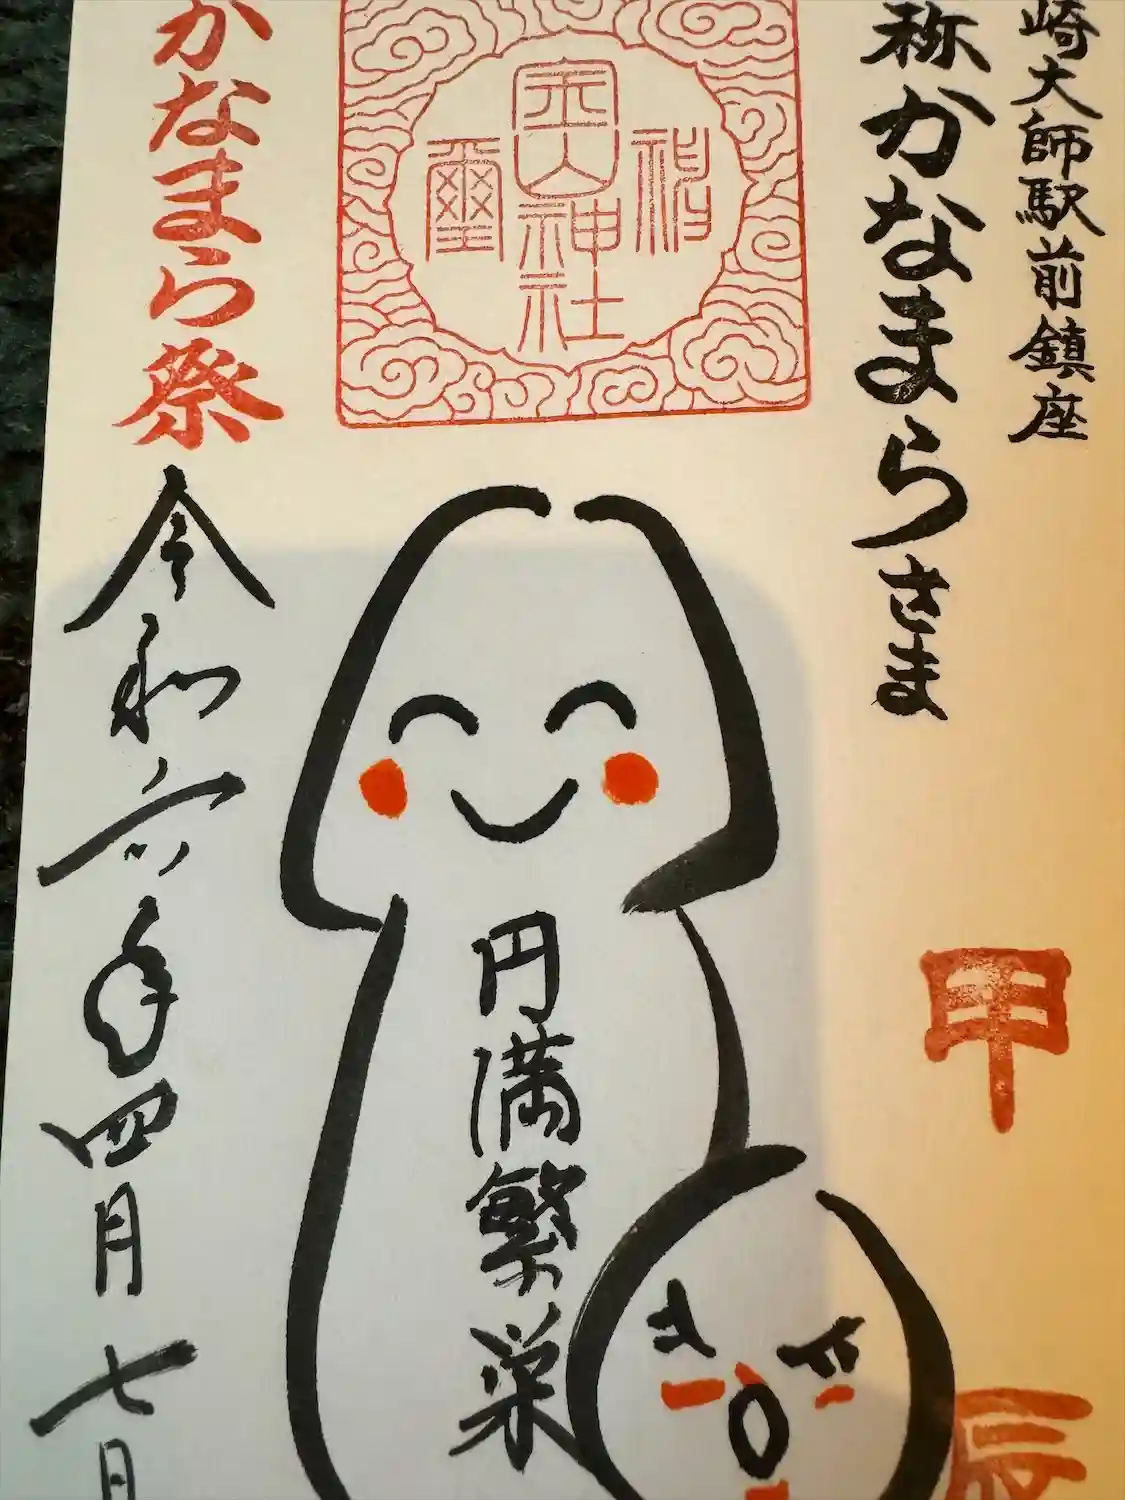 崎大師駅前鎮座
称かなまらさま
甲
辰
金山神社
璽
円満繁栄
かなまら祭
令和六年四月七日